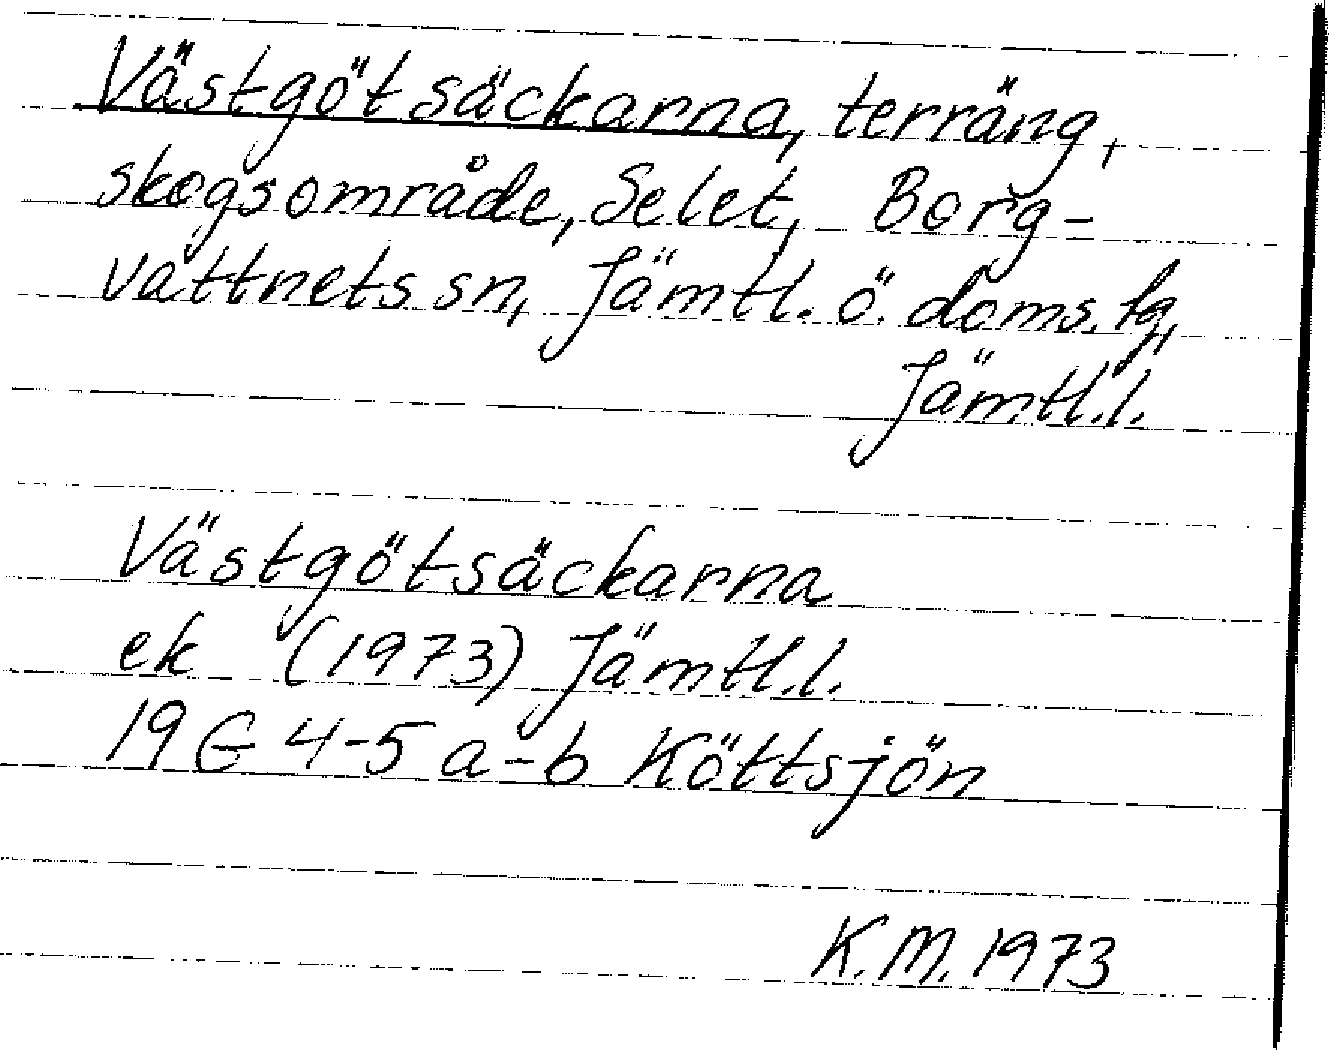 Västgötsäckarna, terräng,
skogsområde, Selet, Borg-
vattnets sn, Jämtl. ö. doms. lg,
Jämtl.l.
Västgötsäckarna
ek (1973) Jämtl.l.
19 G 4-5 a-b Köttsjön
K.M. 1973